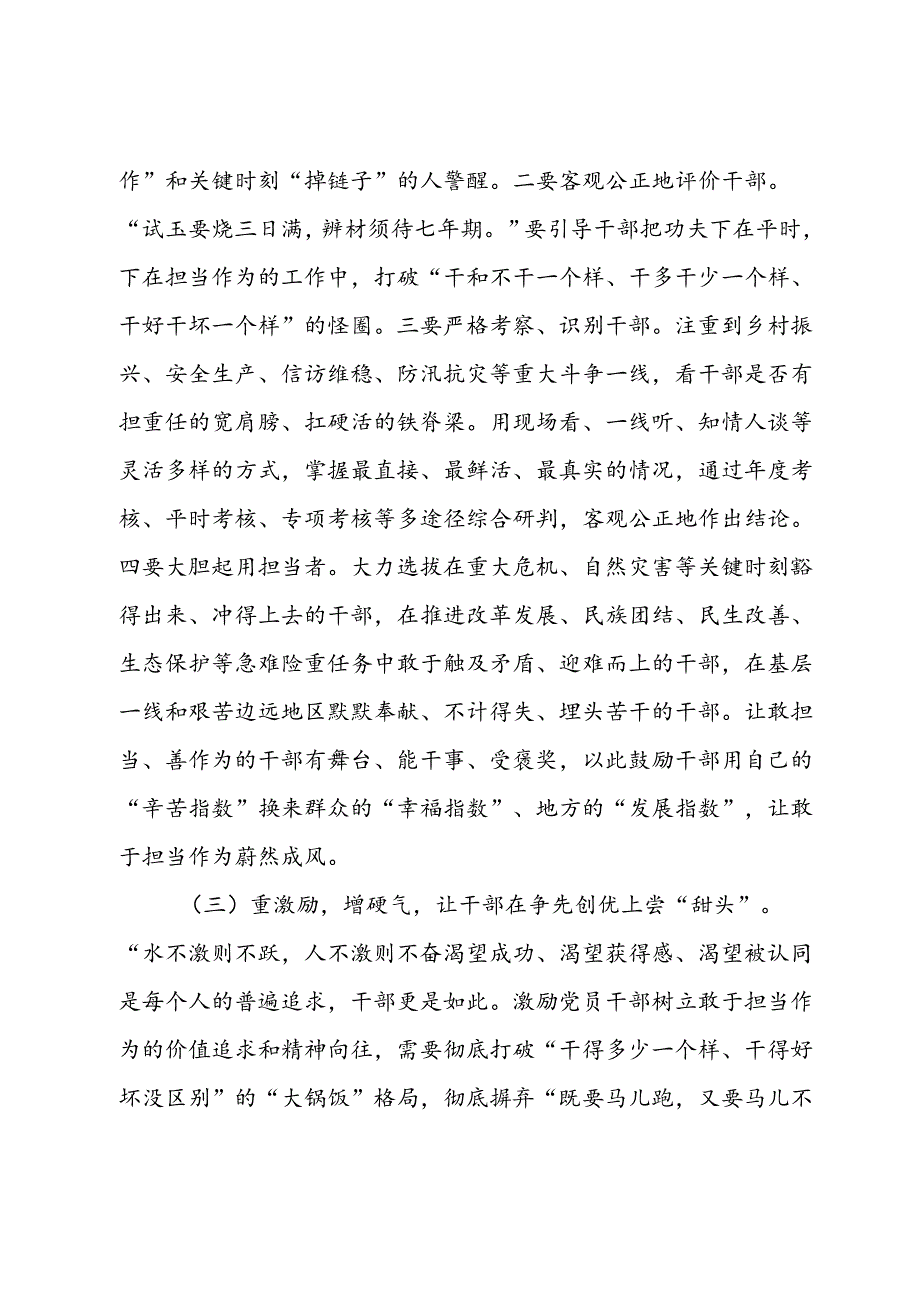 作”和关键时刻“掉链子”的人警醒。二要客观公正地评价干部。
“试玉要烧三日满，辨材须待七年期。”要引导干部把功夫下在平时，
下在担当作为的工作中，打破“干和不干一个样、干多干少一个样、
干好干坏一个样”的怪圈。三要严格考察、识别干部。注重到乡村振
兴、安全生产、信访维稳、防汛抗灾等重大斗争一线，看干部是否有
担重任的宽肩膀、扛硬活的铁脊梁。用现场看、一线听、知情人谈等
灵活多样的方式，掌握最直接、最鲜活、最真实的情况，通过年度考
核、平时考核、专项考核等多途径综合研判，客观公正地作出结论。
四要大胆起用担当者。大力选拔在重大危机、自然灾害等关键时刻豁
得出来、冲得上去的干部，在推进改革发展、民族团结、民生改善、
生态保护等急难险重任务中敢于触及矛盾、迎难而上的干部，在基层
一线和艰苦边远地区默默奉献、不计得失、埋头苦干的干部。让敢担
当、善作为的干部有舞台、能干事、受褒奖，以此鼓励干部用自己的
“辛苦指数”换来群众的“幸福指数”、地方的“发展指数”，让敢
于担当作为蔚然成风。
（三）重激励，增硬气，让干部在争先创优上尝“甜头”。
“水不激则不跃，人不激则不奋渴望成功、渴望获得感、渴望被认同
是每个人的普遍追求，干部更是如此。激励党员干部树立敢于担当作
为的价值追求和精神向往，需要彻底打破“干得多少一个样、干得好
坏没区别”的“大锅饭”格局，彻底摒弃“既要马儿跑，又要马儿不